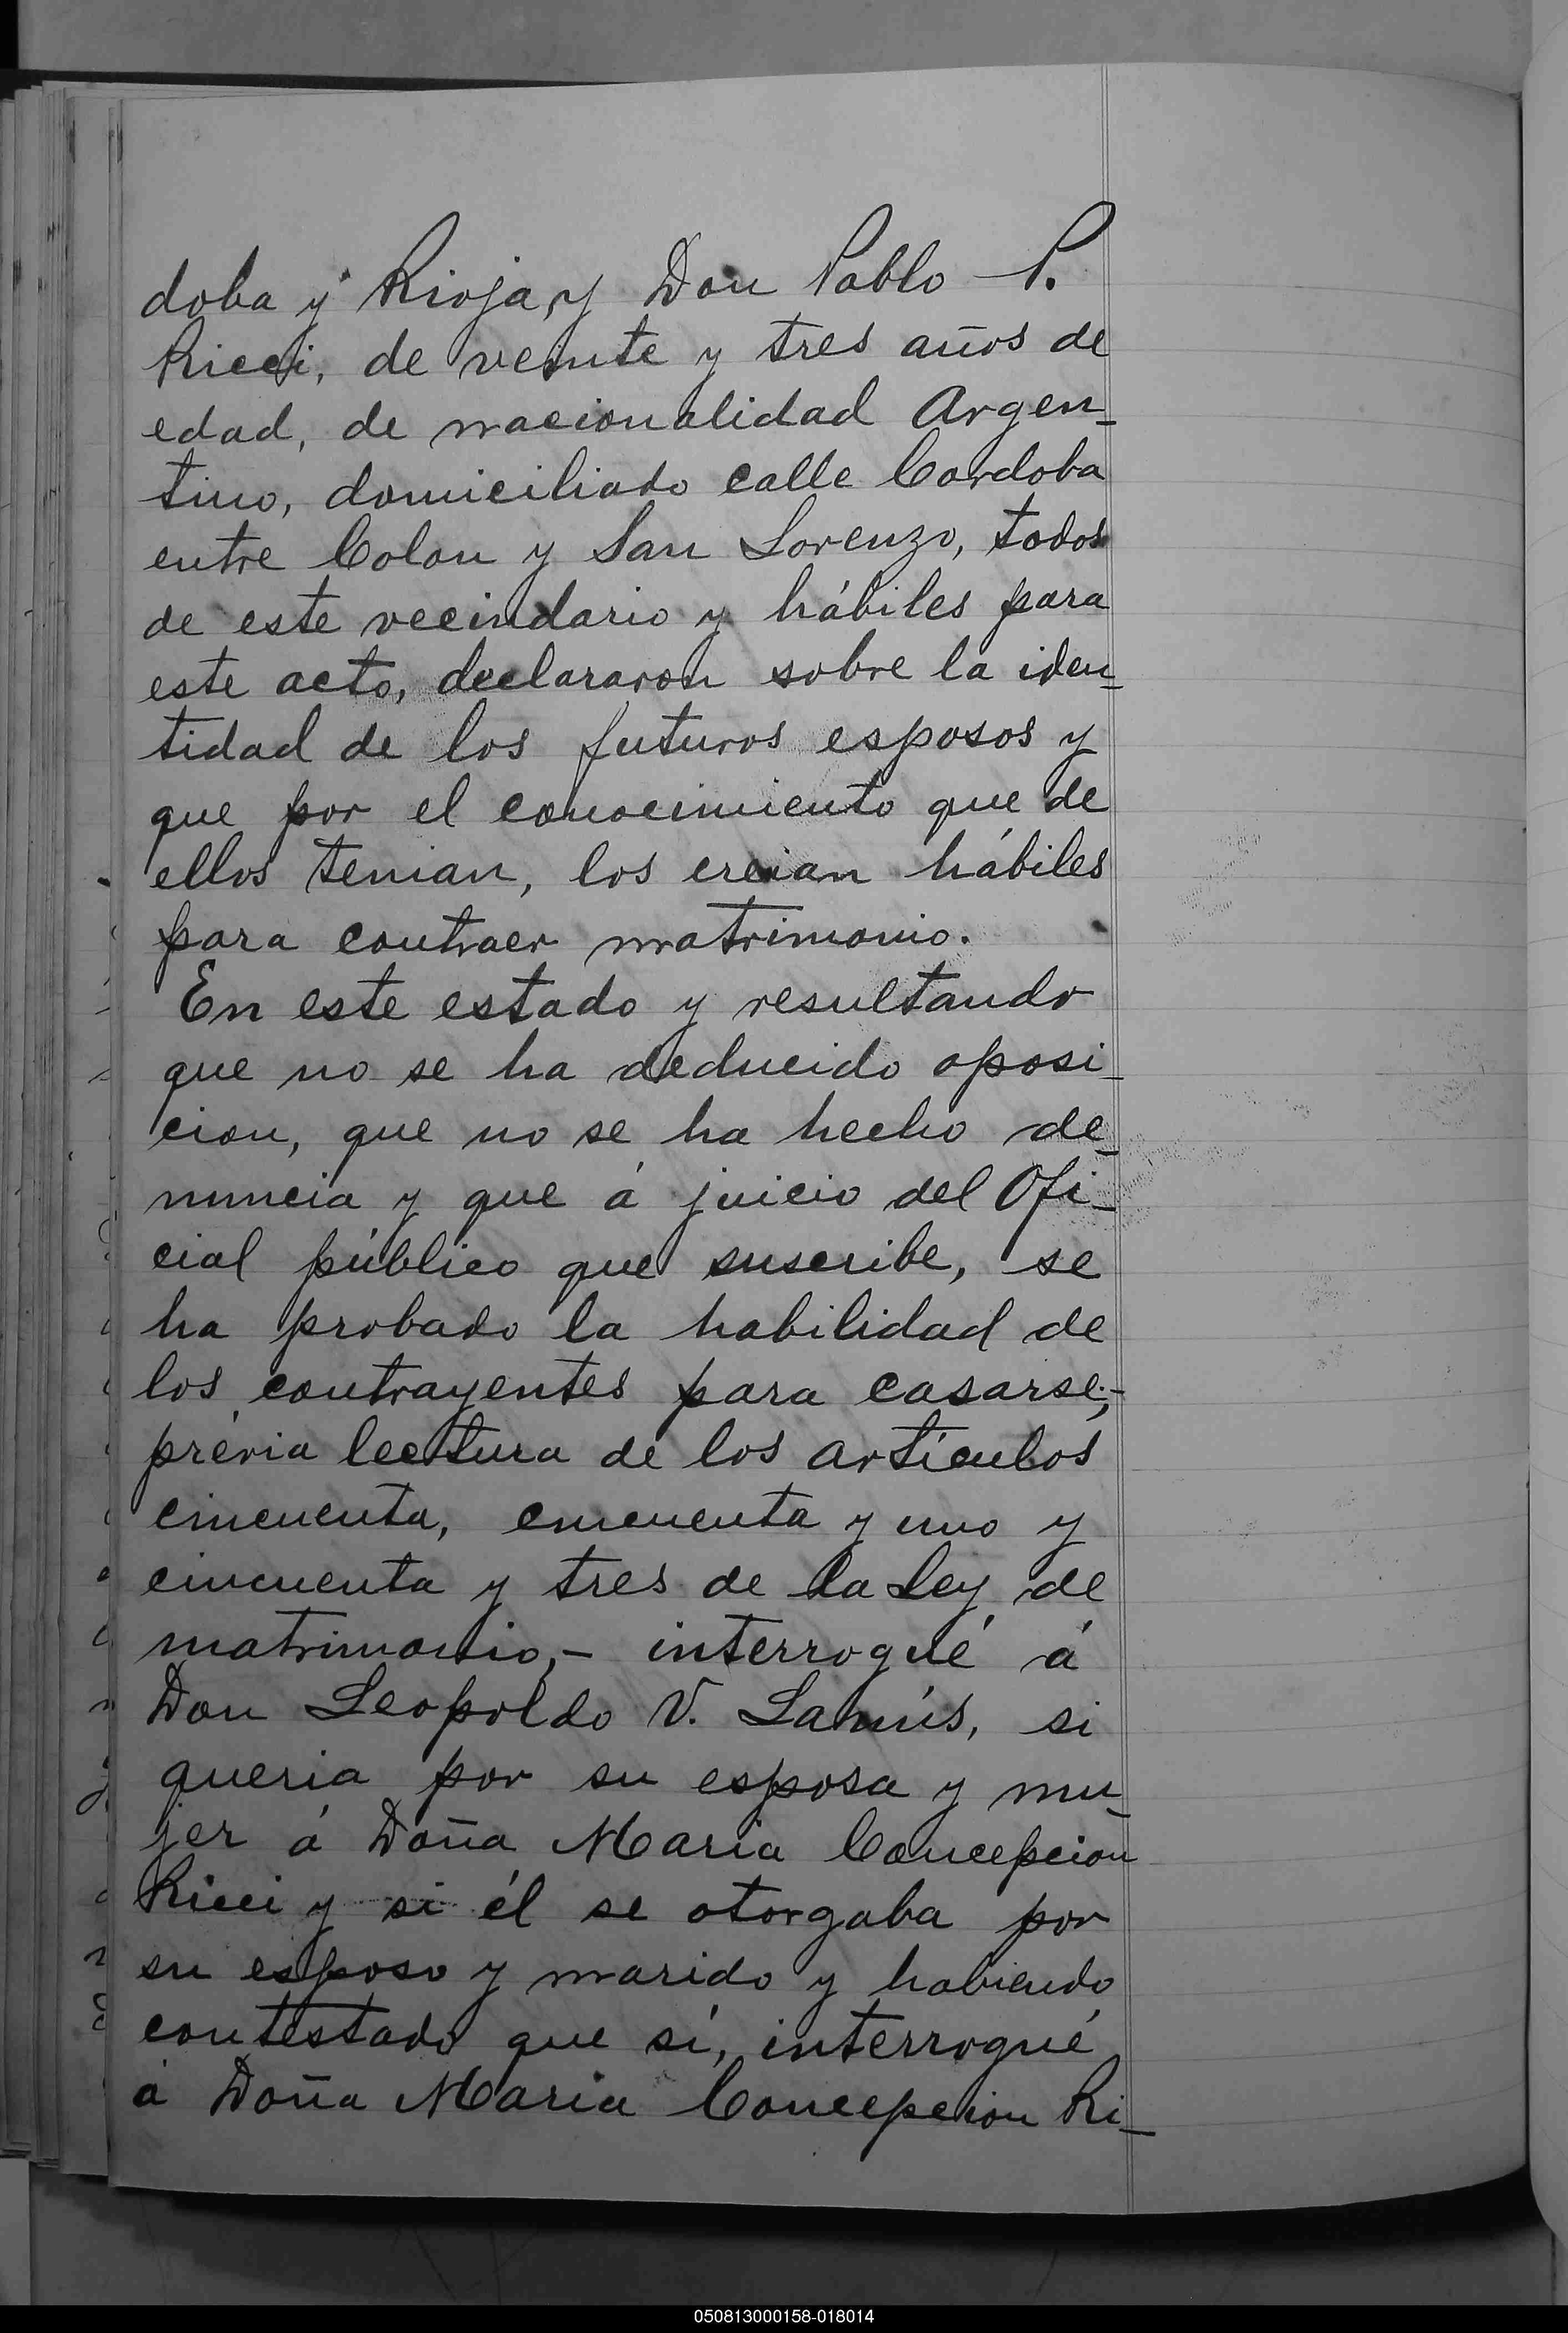 doba y Rioja, y Don Pablo P.
Ricci, de veinte y tres años de
edad, de nacionalidad Argen-
tino, domiciliado calle Cordoba
entre Colon y San Lorenzo, todos
de este vecindario y hábiles para
este acto, declararon sobre la iden-
tidad de los futuros esposos y
que por el conocimiento que de
ellos tenian, los creian hábiles
para contraer matrimonio.
En este estado y resultando
que no se ha deducido oposi-
cion, que no se ha hecho de-
nuncia y que á juicio del Ofi-
cial público que suscribe, se
ha probado la habilidad de
los contrayentes para casarse;-
prévia lectura de los artículos
cincuenta, cincuenta y uno y
cincuenta y tres de la Ley de
matrimonio,- interrogué á
Don Leopoldo V. Lanús, si
queria por su esposa y mu-
jer á Doña Maria Concepcion
Ricci y si él se otorgaba por
su esposo y marido y habiendo
contestado que sí, interrogué
á Doña Maria Concepcion Ri-
050813000158-018014